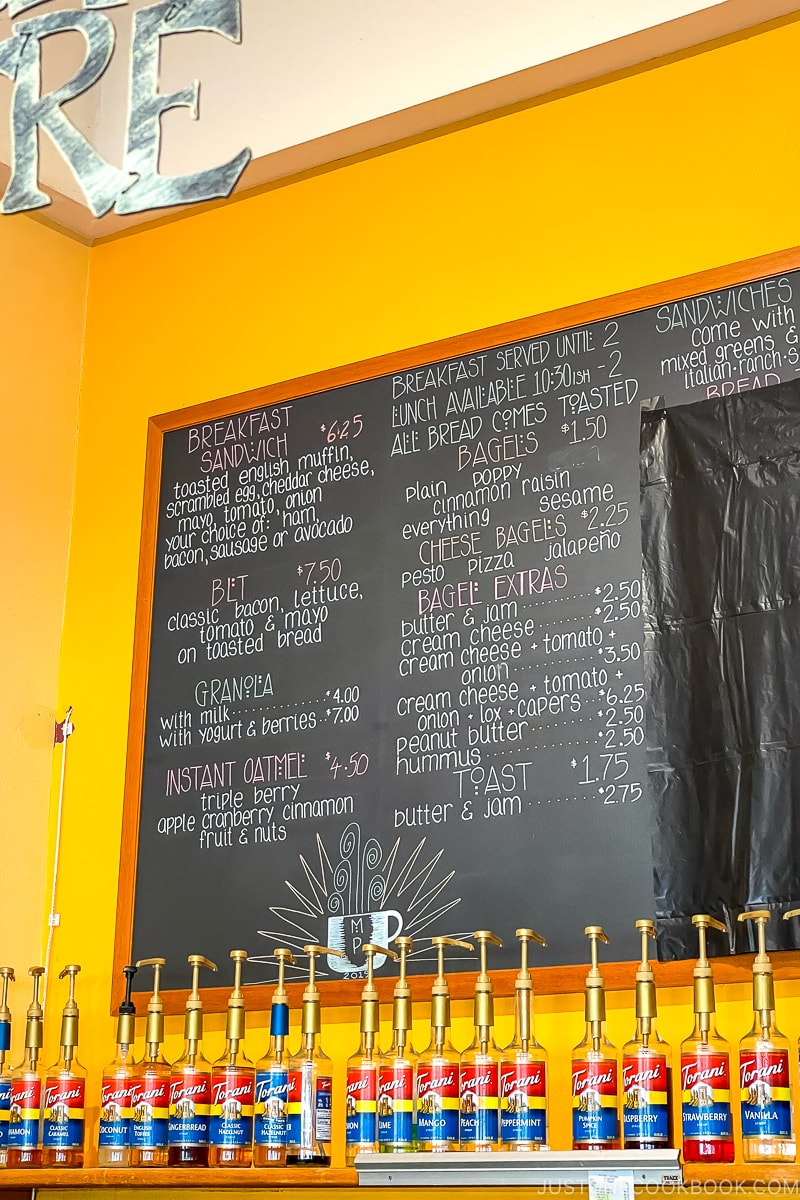 RE
BREAKFAST
SANDWICH $6.25
toasted english muffin,
scrambled egg, cheddar cheese,
mayo, tomato, onion
your choice of: ham,
bacon, sausage or avocado
BLT $7.50
classic bacon, lettuce,
tomato & mayo
on toasted bread
GRANOLA
with milk $4.00
with yogurt & berries $7.00
INSTANT OATMEL $4.50
triple berry
apple cranberry cinnamon
fruit & nuts
BREAKFAST SERVED UNTIL 2
LUNCH AVAILABLE 10:30ISH - 2
ALL BREAD COMES TOASTED
BAGELS $1.50
plain poppy
cinnamon raisin
everything sesame
CHEESE BAGELS $2.25
pesto pizza jalapeño
BAGEL EXTRAS
butter & jam $2.50
cream cheese $2.50
cream cheese + tomato +
onion $3.50
cream cheese + tomato +
onion + lox + capers $6.25
peanut butter $2.50
hummus $2.50
TOAST $1.75
butter & jam $2.75
SANDWICHES
come with
mixed greens &
italian · ranch ·
BREAD
M
P
Torani Torani Torani Torani Torani Torani Torani Torani Torani Torani Torani Torani Torani Torani Torani Torani
CLASSIC CARAMEL
COCONUT
ENGLISH TOFFEE
GINGERBREAD
CLASSIC HAZELNUT
CLASSIC HAZELNUT
LIME
MANGO
PEACH
PEPPERMINT
PUMPKIN SPICE
RASPBERRY
STRAWBERRY
VANILLA
JUSTINECOOKBOOK.COM